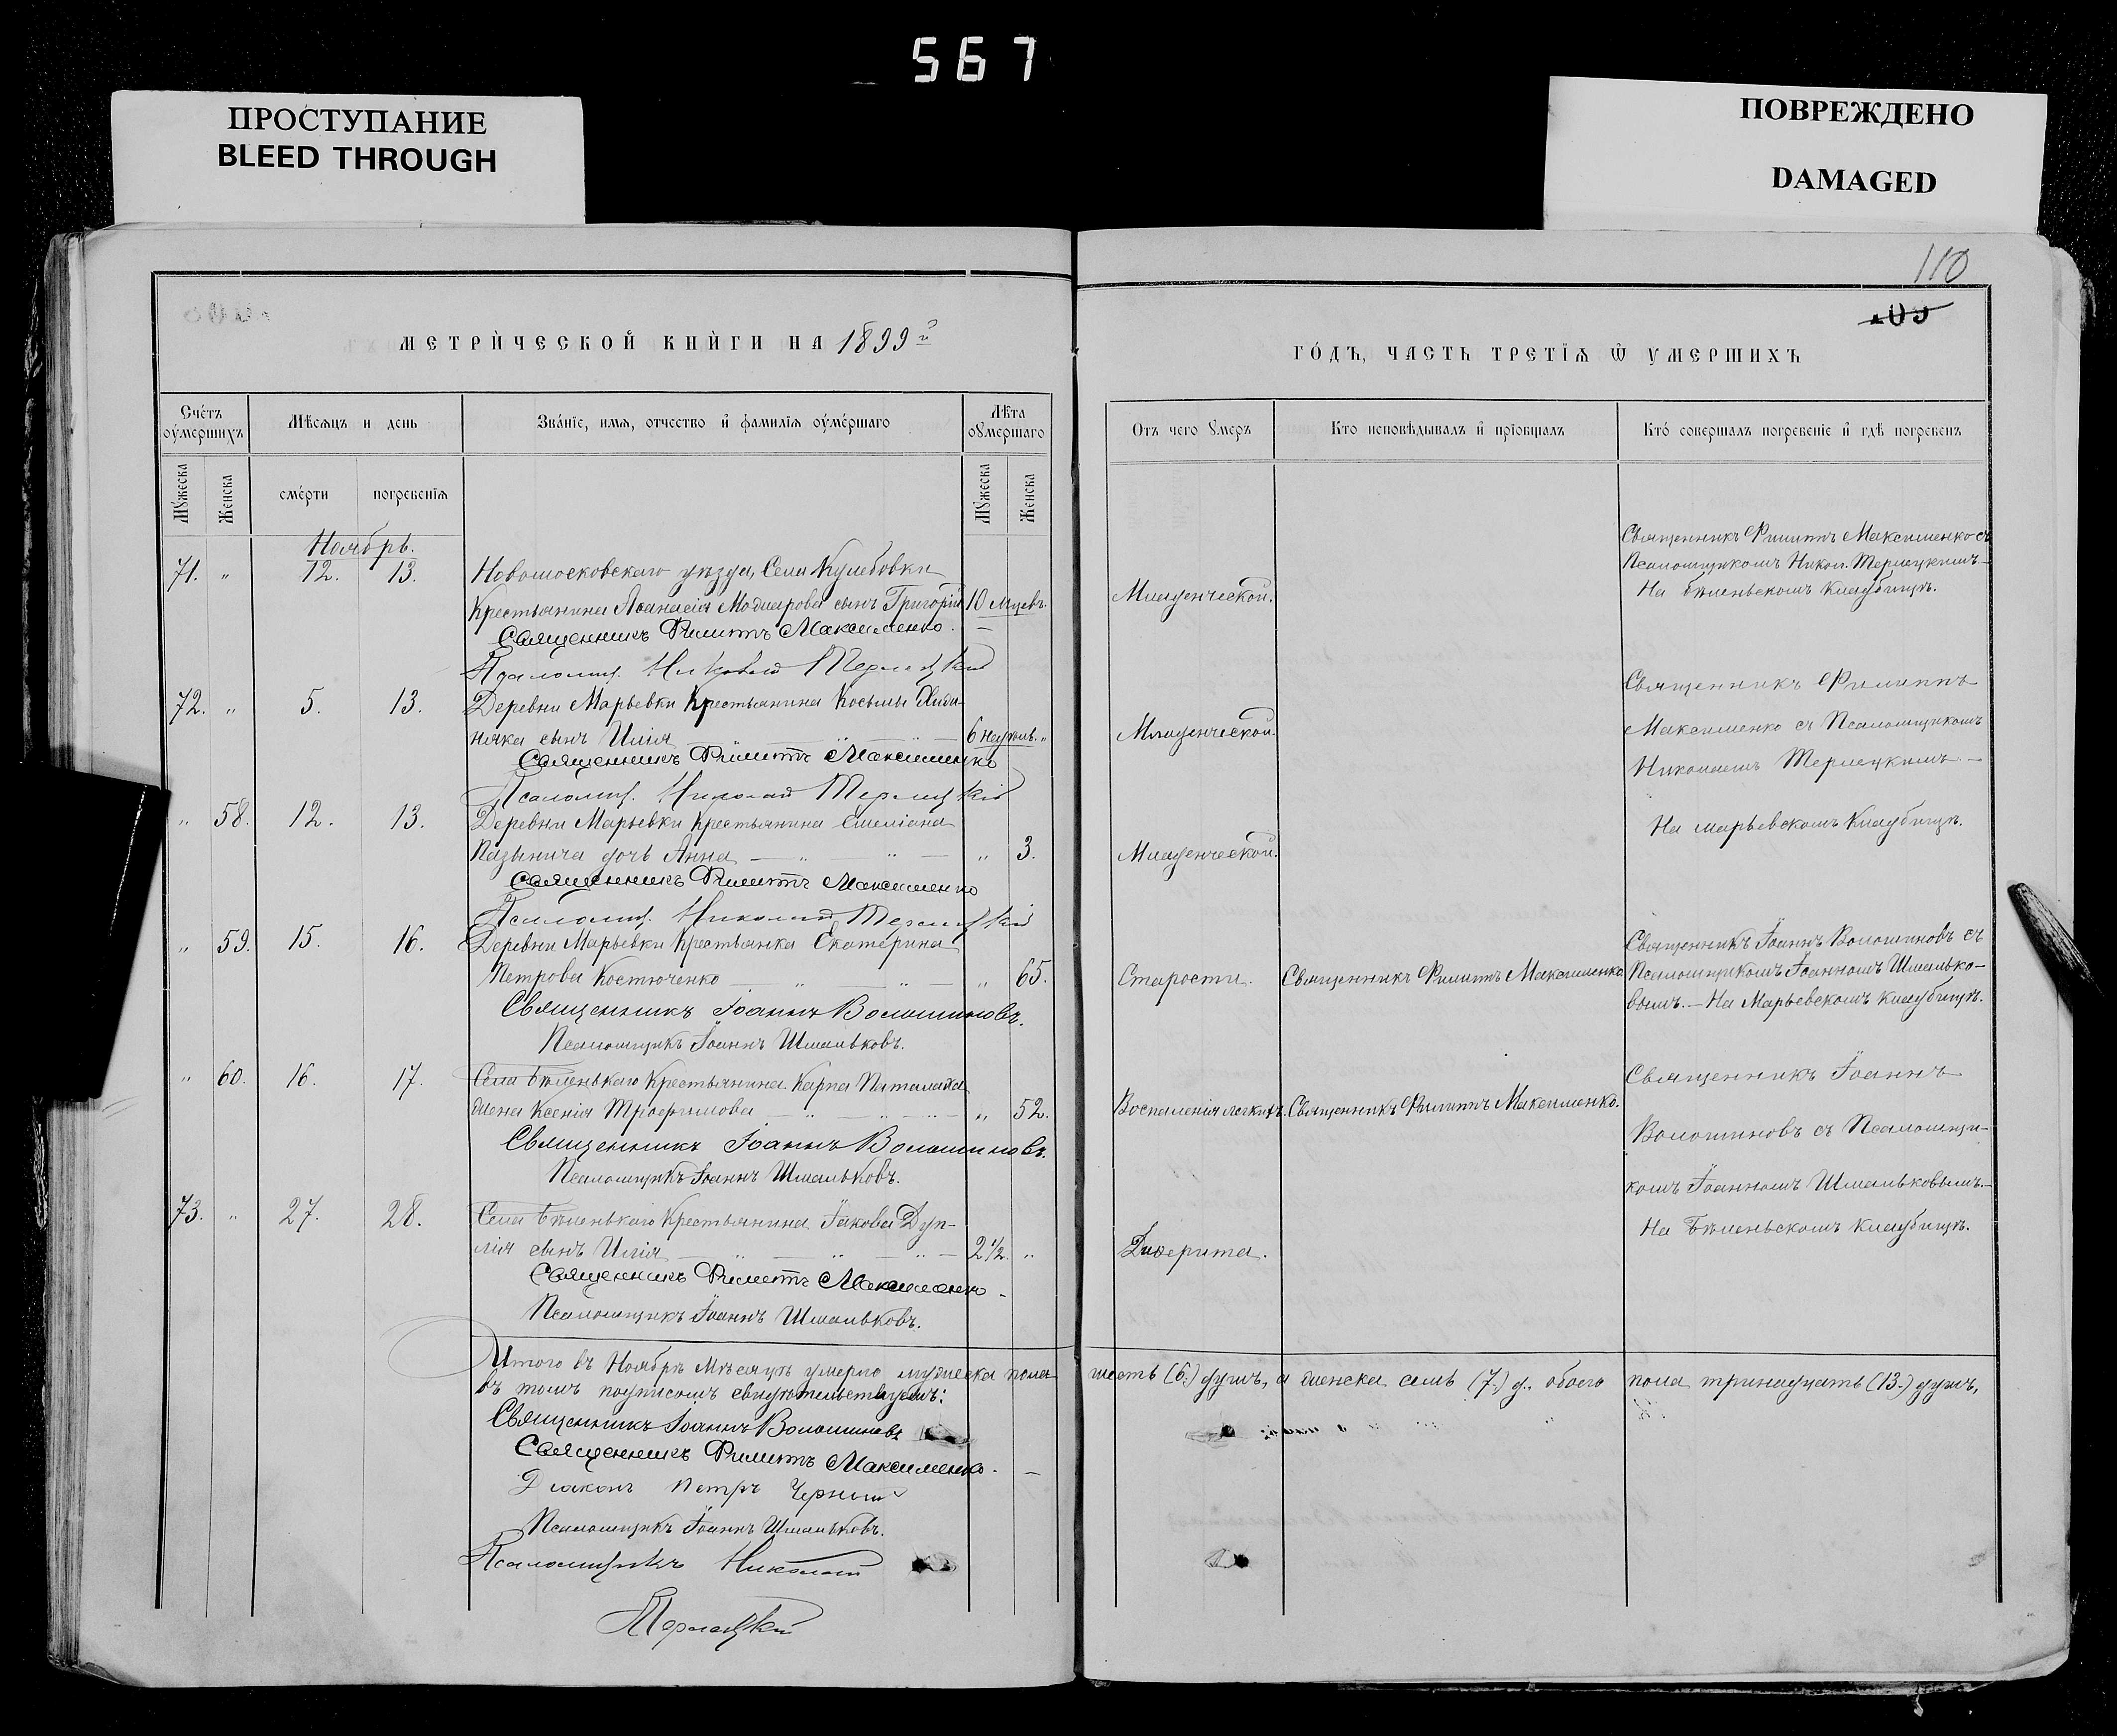 567
ПРОСТУПАНИЕ
BLEED THROUGH
ПОВРЕЖДЕНО
DAMAGED
110
109
МЕТРИЧЕСКОЙ КНИГИ НА 1899й
ГОДЪ, ЧАСТЬ ТРЕТІЯ Ѿ УМЕРШИХЪ
Счетъ оумершихъ
Мѣсяцъ и день
Званіе, имя, отчество и фамилія оумершаго
Лѣта оумершаго
Отъ чего умеръ
Кто исповѣдывалъ и пріобщалъ
Кто совершалъ погребеніе и гдѣ погребенъ
Мужеска
Женска
смерти
погребенія
Мужеска
Женска
Ноябрь.
71. " 12. 13. Новомосковскаго уѣзда, Села Кулебовки
Крестьянина Аѳанасія сынъ Григорій 10 мѣсцевъ.
Священникъ Филиппъ Максименко.
Псаломщ. Николай Терлецкій
Младенческой.
Священникъ Филиппъ Максименко съ
Псаломщикомъ Никол. Терлецкимъ
На бѣленьскомъ кладбищѣ.
72. " 5. 13. Деревни Марьевки Крестьянина Косьмы
няка сынъ Илія 6 недѣль. "
Священникъ Филиппъ Максименко
Псаломщ. Николай Терлецкій
Младенческой.
Священникъ Филиппъ
Максименко съ Псаломщикомъ
Николаемъ Терлецкимъ
На марьевскомъ Кладбищѣ.
" 58. 12. 13. Деревни Марьевки Крестьянина Емеліана
дочь Анна " 3.
Священникъ Филиппъ Максименко
Псаломщ. Николай Терлецкій
Младенческой.
" 59. 15. 16. Деревни Марьевки Крестьянка Екатерина
Петрова Костюченко " 65.
Священникъ Іоаннъ Волошиновъ.
Псаломщикъ Іоаннъ Шмальковъ.
Старости. Священникъ Филиппъ Максименко
Священникъ Іоаннъ Волошиновъ съ
Псаломщикомъ Іоанномъ Шмалько-
вымъ. – На Марьевскомъ кладбищѣ.
" 60. 16. 17. Села Бѣленькаго Крестьянина Карпа
жена Ксенія Трофимова " 52.
Священникъ Іоаннъ Волошиновъ.
Псаломщикъ Іоаннъ Шмальковъ.
Воспаленія легкихъ. Священникъ Филиппъ Максименко.
Священникъ Іоаннъ
Волошиновъ съ Псаломщи-
комъ Іоанномъ Шмальковымъ. –
На Бѣленьскомъ кладбищѣ.
73. " 27. 28. Села Бѣленькаго Крестьянина Іакова Дуп-
лія сынъ Илія 2 1/2. "
Священникъ Филиппъ Максименко
Псаломщикъ Іоаннъ Шмальковъ.
Дифтерита.
Итого въ Ноябрѣ Мѣсяцѣ умерло мужеска пола шесть (6.) душъ, а женска семь (7.) д., обоего пола тринадцать (13.) душъ,
въ томъ подписомъ свидѣтельствуемъ:
Священникъ Іоаннъ Волошиновъ
Священникъ Филиппъ Максименко.
Діаконъ Петръ Черный
Псаломщикъ Іоаннъ Шмальковъ.
Псаломщикъ Николай
Терлецкій